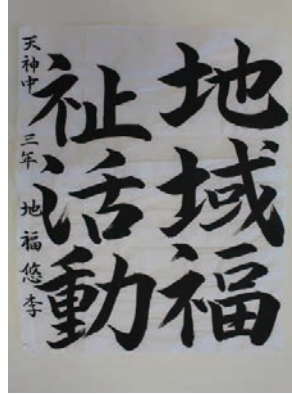 地域福
祉活動
天神中 三年 地福悠李